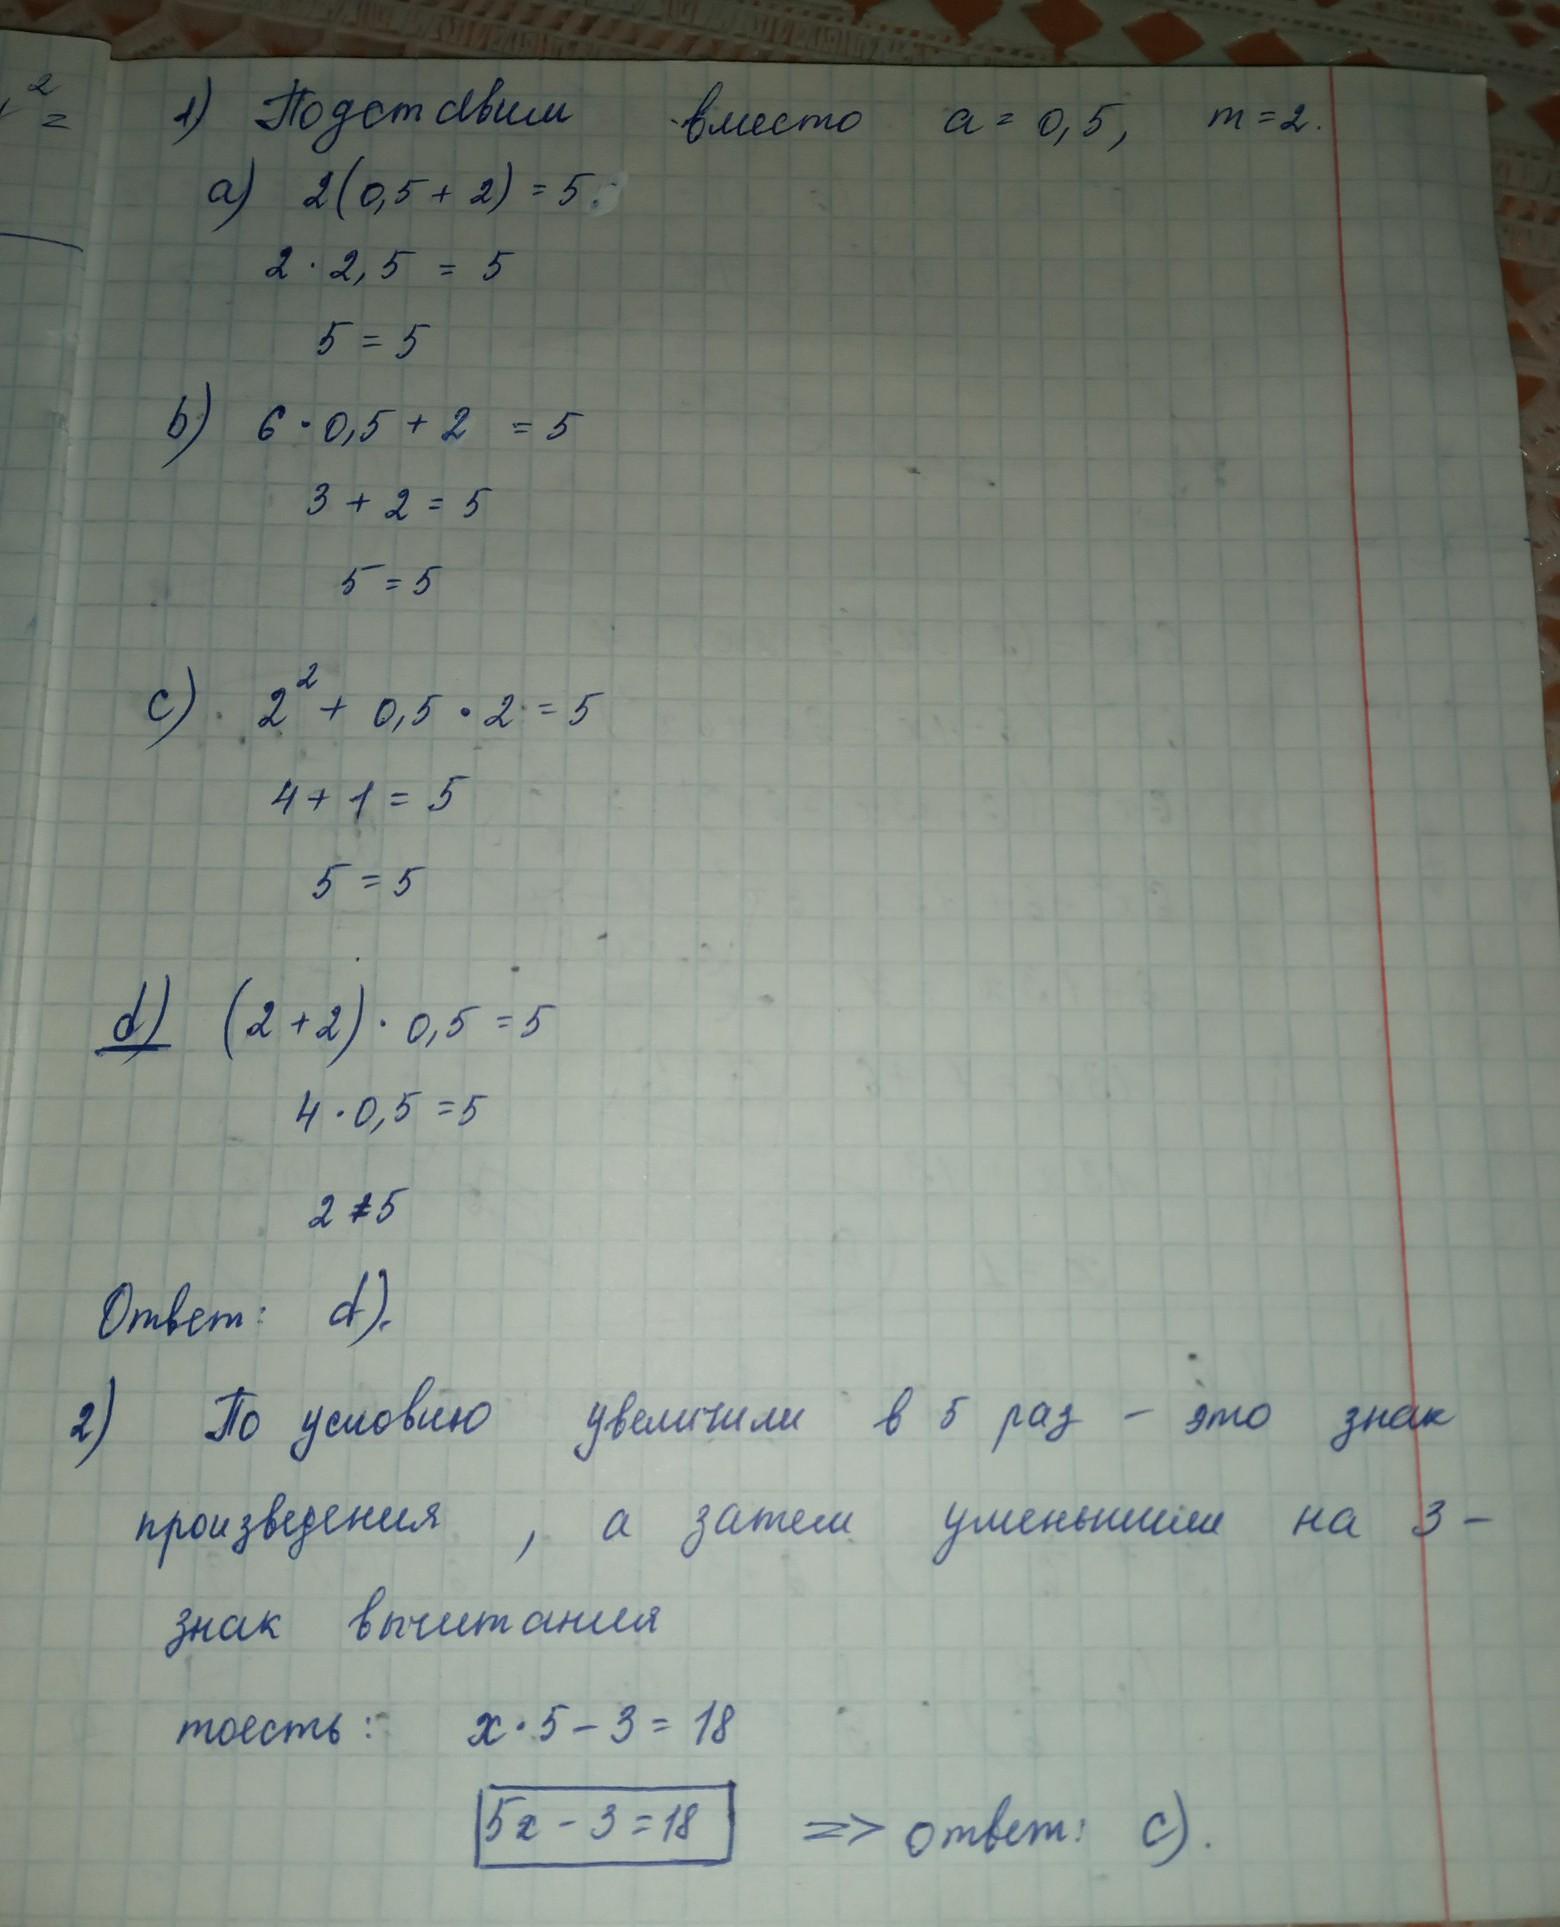 2 =
1) Подставим вместо a = 0,5, m = 2.
a) 2(0,5 + 2) = 5.
2 · 2,5 = 5
5 = 5
b) 6 · 0,5 + 2 = 5
3 + 2 = 5
5 = 5
c) 2² + 0,5 · 2 = 5
4 + 1 = 5
5 = 5
d) (2 + 2) · 0,5 = 5
4 · 0,5 = 5
2 ≠ 5
Ответ: d).
2) По условию увеличили в 5 раз – это знак
произведения, а затем уменьшили на 3 –
знак вычитания
тоесть: x · 5 – 3 = 18
5x – 3 = 18 => ответ: c).